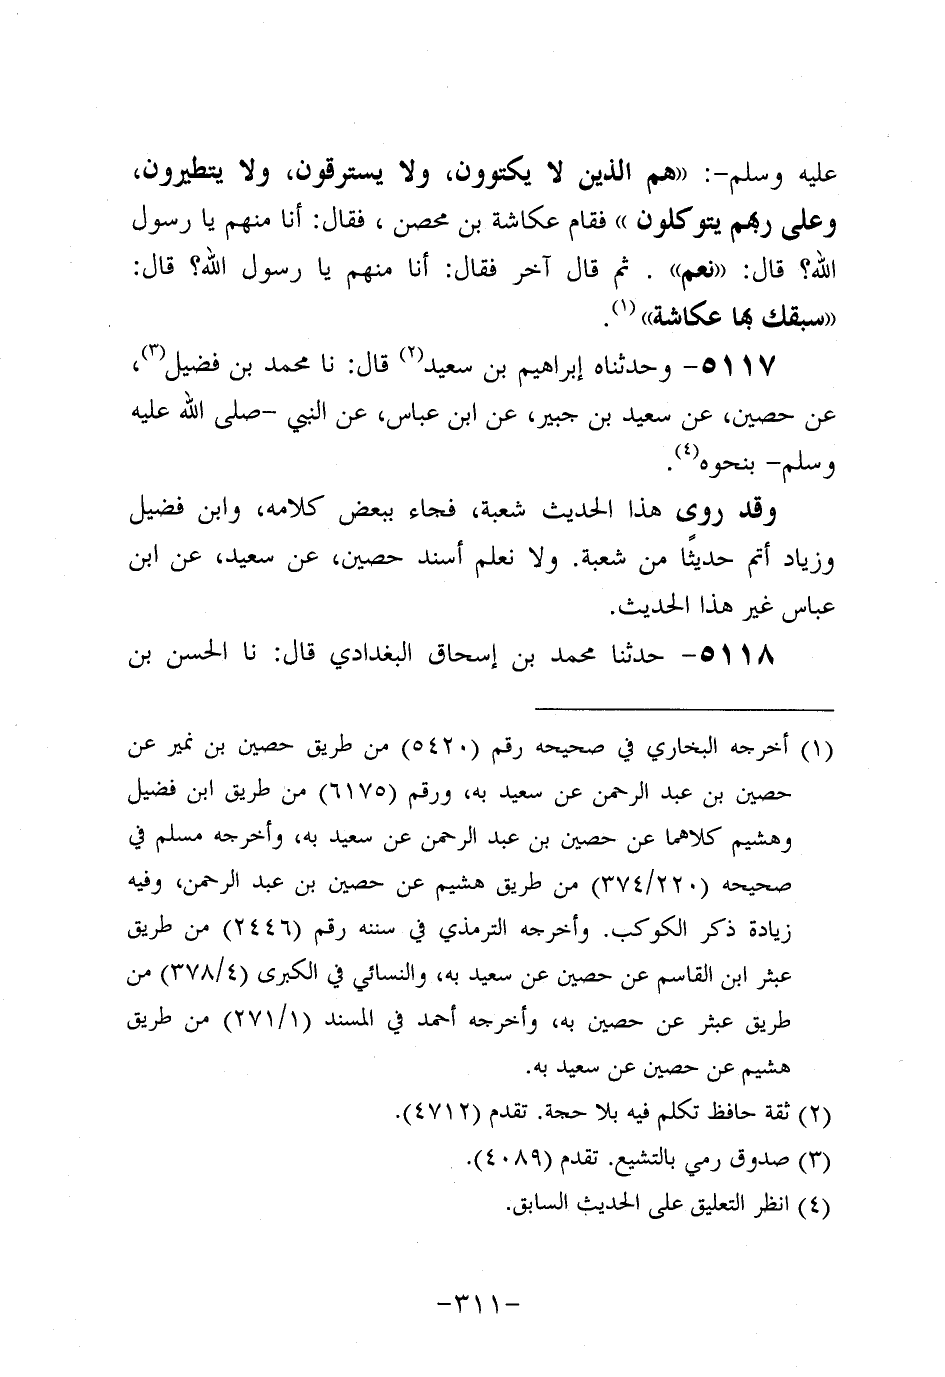 عليه وسلم-: «هم الذين لا يكتوون، ولا يسترقون، ولا يتطيرون،
وعلى ربهم يتوكلون » فقام عكاشة بن محصن ، فقال: أنا منهم يا رسول
الله؟ قال: «نعم» . ثم قال آخر فقال: أنا منهم يا رسول الله؟ قال:
«سبقك بها عكاشة»(١).
٥١١٧- وحدثناه إبراهيم بن سعيد(٢) قال: نا محمد بن فضيل(٣)،
عن حصين، عن سعيد بن جبير، عن ابن عباس، عن النبي -صلى الله عليه
وسلم- بنحوه(٤).
وقد روى هذا الحديث شعبة، فجاء ببعض كلامه، وابن فضيل
وزياد أتم حديثًا من شعبة. ولا نعلم أسند حصين، عن سعيد، عن ابن
عباس غير هذا الحديث.
٥١١٨- حدثنا محمد بن إسحاق البغدادي قال: نا الحسن بن
(١) أخرجه البخاري في صحيحه رقم (٥٤٢٠) من طريق حصين بن نمير عن
حصين بن عبد الرحمن عن سعيد به، ورقم (٦١٧٥) من طريق ابن فضيل
وهشيم كلاهما عن حصين بن عبد الرحمن عن سعيد به، وأخرجه مسلم في
صحيحه (٣٧٤/٢٢٠) من طريق هشيم عن حصين بن عبد الرحمن، وفيه
زيادة ذكر الكوكب. وأخرجه الترمذي في سننه رقم (٢٤٤٦) من طريق
عبثر ابن القاسم عن حصين عن سعيد به، والنسائي في الكبرى (٣٧٨/٤) من
طريق عبثر عن حصين به، وأخرجه أحمد في المسند (٢٧١/١) من طريق
هشيم عن حصين عن سعيد به.
(٢) ثقة حافظ تكلم فيه بلا حجة. تقدم (٤٧١٢).
(٣) صدوق رمي بالتشيع. تقدم (٤٠٨٩).
(٤) انظر التعليق على الحديث السابق.
-٣١١-